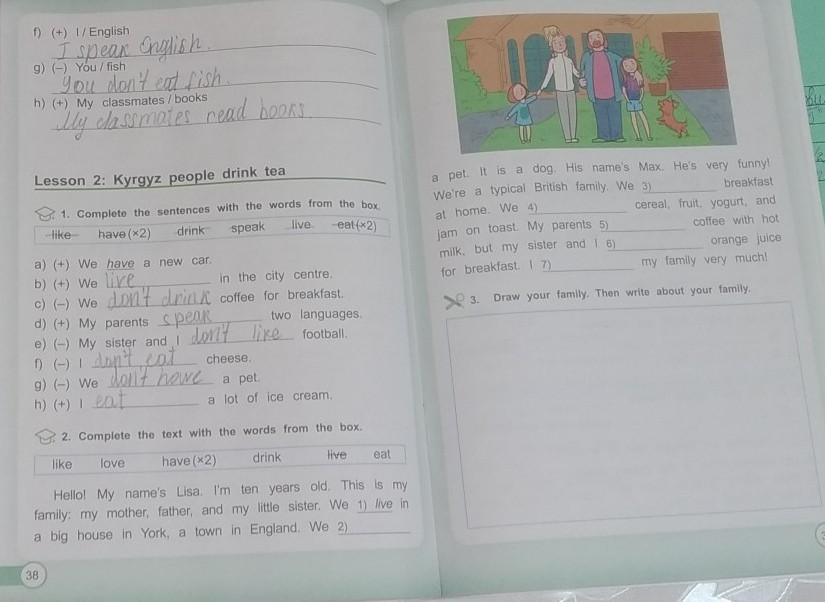 f) (+) I / English
I speak English.
g) (–) You / fish
You don't eat fish.
h) (+) My classmates / books
My classmates read books.
Lesson 2: Kyrgyz people drink tea
1. Complete the sentences with the words from the box.
like have (×2) drink speak live eat (×2)
a) (+) We have a new car.
b) (+) We live in the city centre.
c) (–) We don't drink coffee for breakfast.
d) (+) My parents speak two languages.
e) (–) My sister and I don't like football.
f) (–) I don't eat cheese.
g) (–) We don't howe a pet.
h) (+) I eat a lot of ice cream.
2. Complete the text with the words from the box.
like love have (×2) drink live eat
Hello! My name's Lisa. I'm ten years old. This is my
family: my mother, father, and my little sister. We 1) live in
a big house in York, a town in England. We 2)
38
a pet. It is a dog. His name's Max. He's very funny!
We're a typical British family. We 3) breakfast
at home. We 4) cereal, fruit, yogurt, and
jam on toast. My parents 5) coffee with hot
milk, but my sister and I 6) orange juice
for breakfast. I 7) my family very much!
3. Draw your family. Then write about your family.